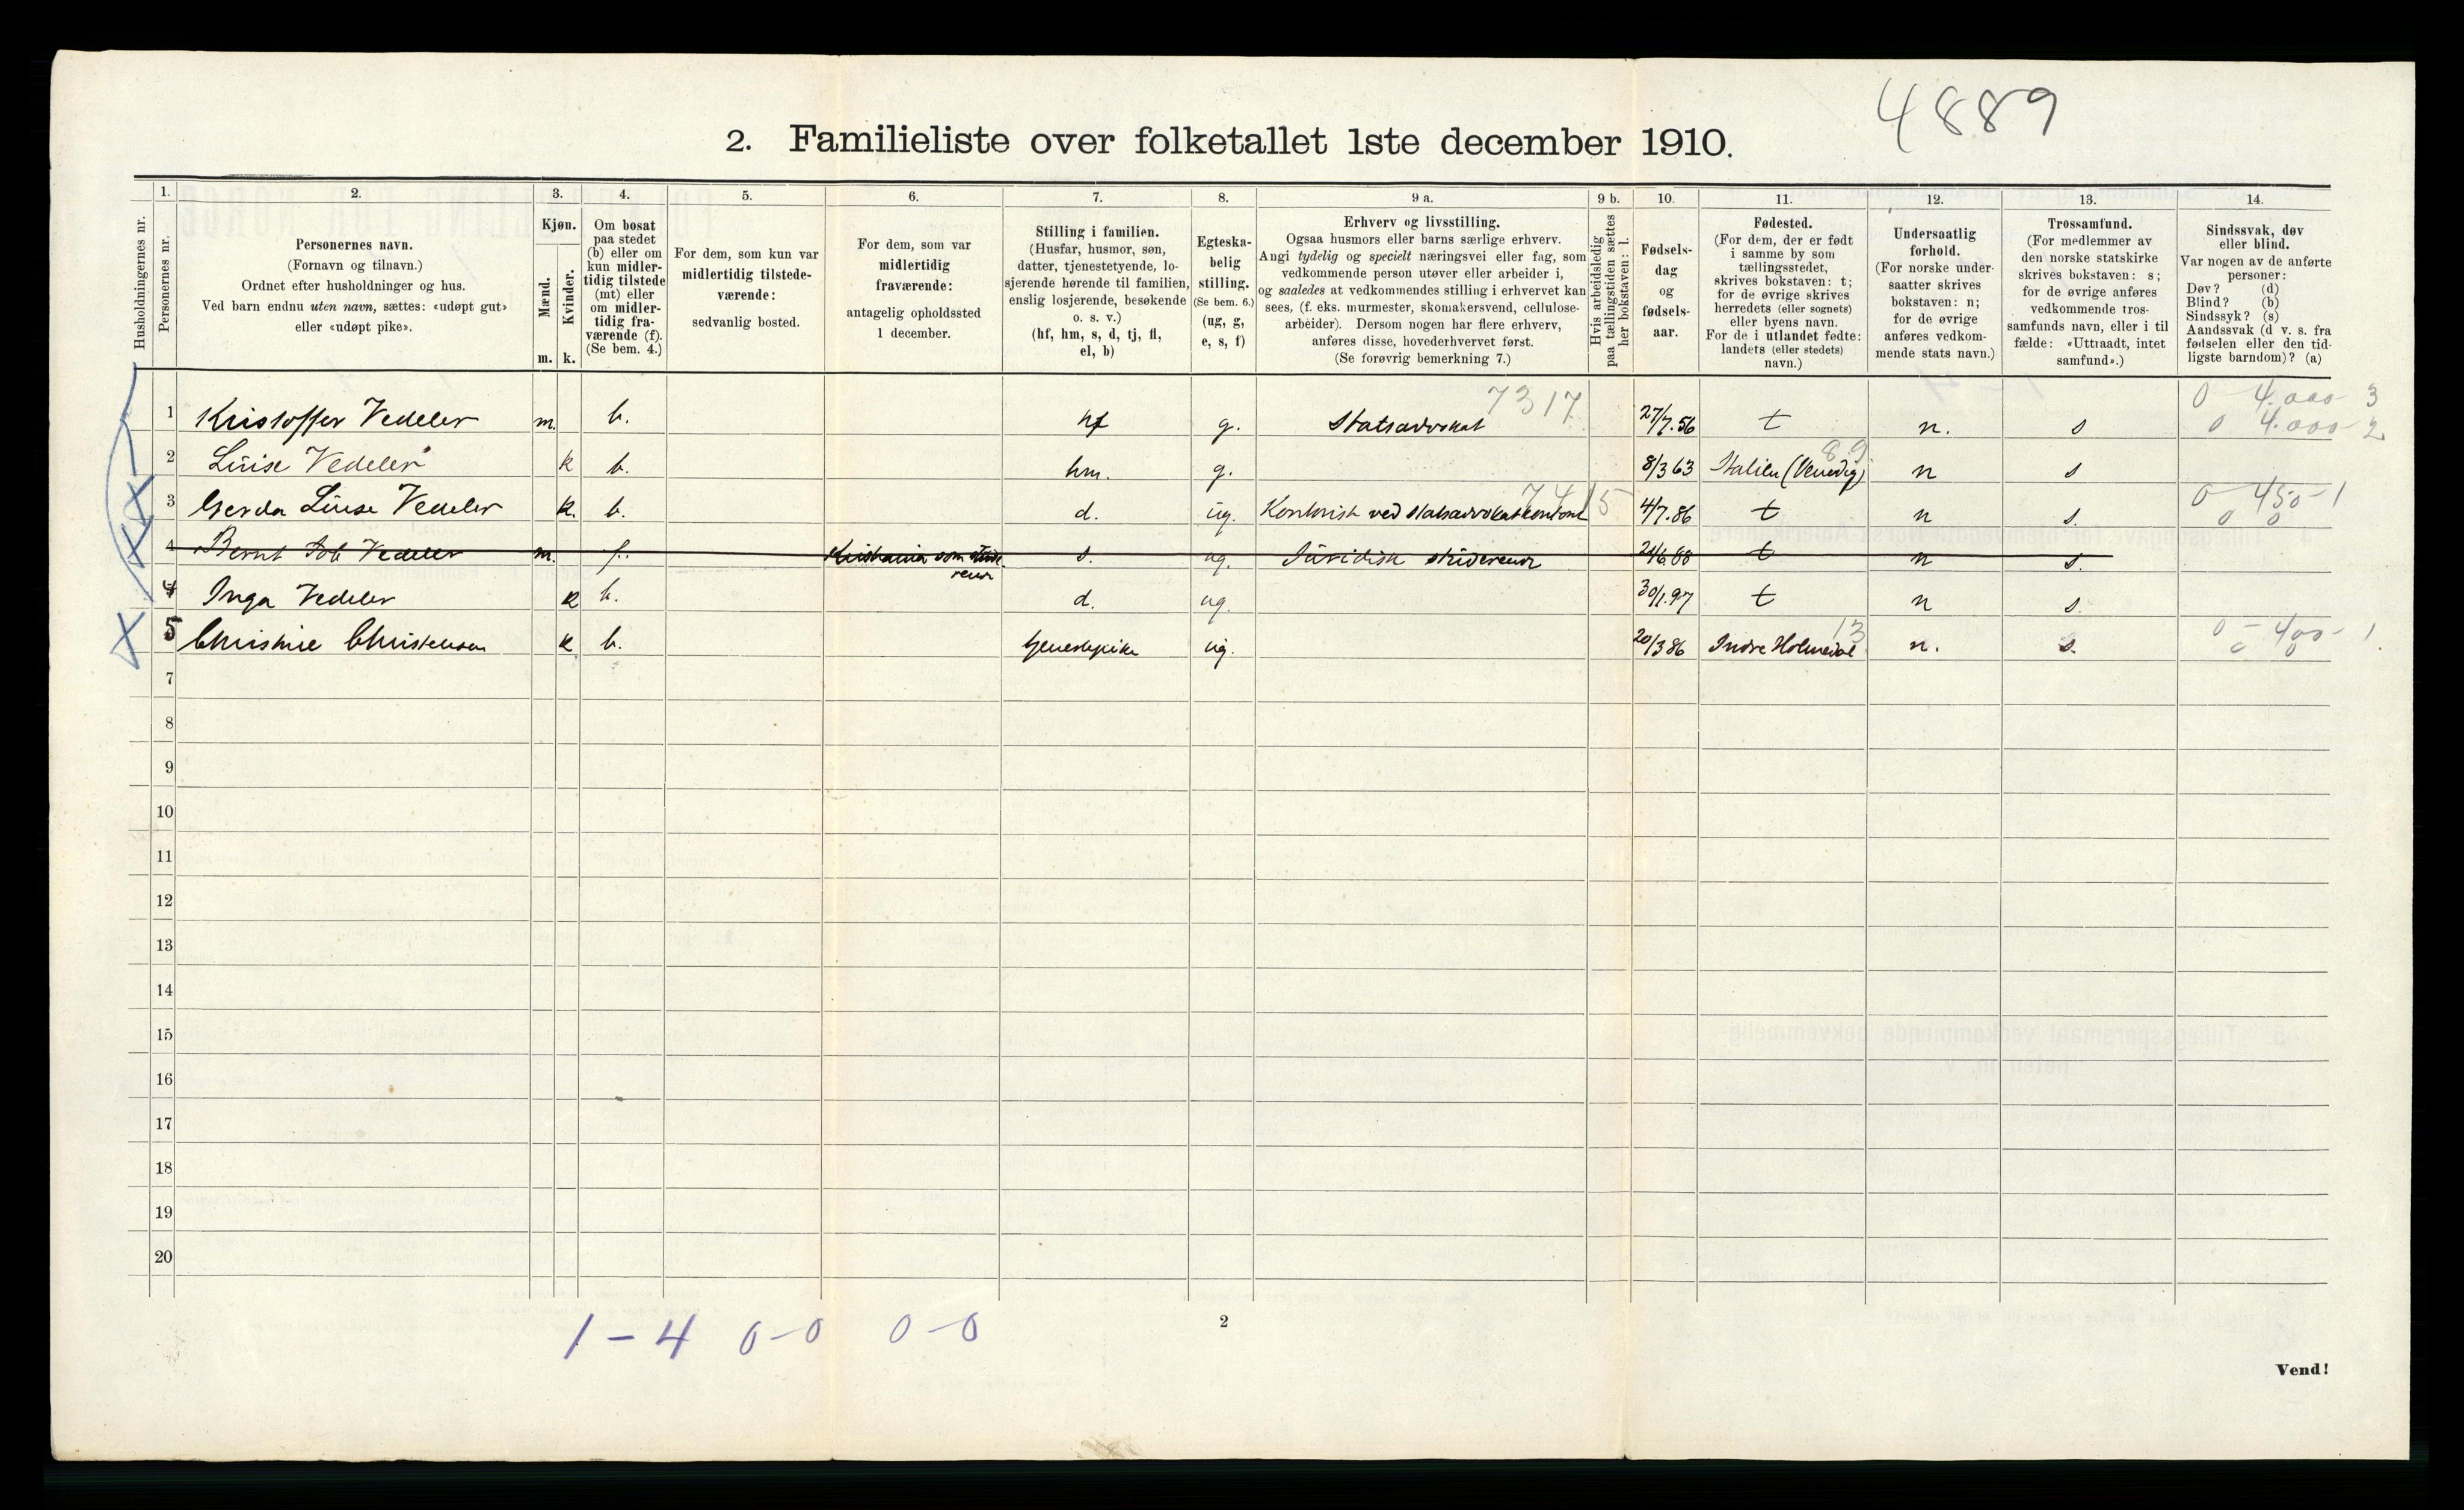 4889
2. Familieliste over folketallet 1ste december 1910.
Husholdningernes nr.
1. Personernes nr.
2. Personernes navn.
(Fornavn og tilnavn.)
Ordnet efter husholdninger og hus.
Ved barn endnu uten navn, sættes: «udøpt gut»
eller «udøpt pike».
3. Kjøn.
Mænd. m.
Kvinder. k.
4. Om bosat
paa stedet
(b) eller om
kun midler-
tidig tilstede
(mt) eller
om midler-
tidig fra-
værende (f).
(Se bem. 4.)
5. For dem, som kun var
midlertidig tilstede-
værende:
sedvanlig bosted.
6. For dem, som var
midlertidig
fraværende:
antagelig opholdssted
1 december.
7. Stilling i familien.
(Husfar, husmor, søn,
datter, tjenestetyende, lo-
sjerende hørende til familien,
enslig losjerende, besøkende
o. s. v.)
(hf, hm, s, d, tj, fl,
el, b)
8. Egteska-
belig
stilling.
(Se bem. 6.)
(ug, g,
e, s, f)
9 a. Erhverv og livsstilling.
Ogsaa husmors eller barns særlige erhverv.
Angi tydelig og specielt næringsvei eller fag, som
vedkommende person utøver eller arbeider i,
og saaledes at vedkommendes stilling i erhvervet kan
sees, (f. eks. murmester, skomakersvend, cellulose-
arbeider). Dersom nogen har flere erhverv,
anføres disse, hovederhvervet først.
(Se forøvrig bemerkning 7.)
9 b. Hvis arbeidsledig
paa tællingstiden sættes
her bokstaven: l.
10. Fødsels-
dag
og
fødsels-
aar.
11. Fødested.
(For dem, der er født
i samme by som
tællingsstedet,
skrives bokstaven: t;
for de øvrige skrives
herredets (eller sognets)
eller byens navn.
For de i utlandet fødte:
landets (eller stedets)
navn.)
12. Undersaatlig
forhold.
(For norske under-
saatter skrives
bokstaven: n;
for de øvrige
anføres vedkom-
mende stats navn.)
13. Trossamfund.
(For medlemmer av
den norske statskirke
skrives bokstaven: s;
for de øvrige anføres
vedkommende tros-
samfunds navn, eller i til
fælde: «Uttraadt, intet
samfund».)
14. Sindssvak, døv
eller blind.
Var nogen av de anførte
personer:
Døv? (d)
Blind? (b)
Sindssyk? (s)
Aandssvak (d v. s. fra
fødselen eller den tid-
ligste barndom)? (a)
7317
0 4.000 3
1 Kristoffer Vedeler m. b. hf g. Statsadvokat 27/7.56 t n. s
0 4.000 2
89
2 Luise Vedeler k b. hm. g. 8/3 63 Italien (Venedig) n s
7415
0 450 1
3 Gerda Luise Vedeler k. b. d. ug. Kontorist ved statsadvokatkontoret 4/7.86 t n s.
0 0
4 Bernt Vedeler m. f. Kristiania som stude-
rende s. ug. Juridisk studerende 88 t n s.
4 Inga Vedeler k b. d. ug. 30/1.97 t n s.
13
0 - 400 - 1
5 Christine Christensen k b. tjenestepike ug. 20/3 86 Indre Holmedal n. s.
0 0
7
8
9
10
11
12
13
14
15
16
17
18
19
20
1 - 4 0 - 0 0 - 0
2
Vend!